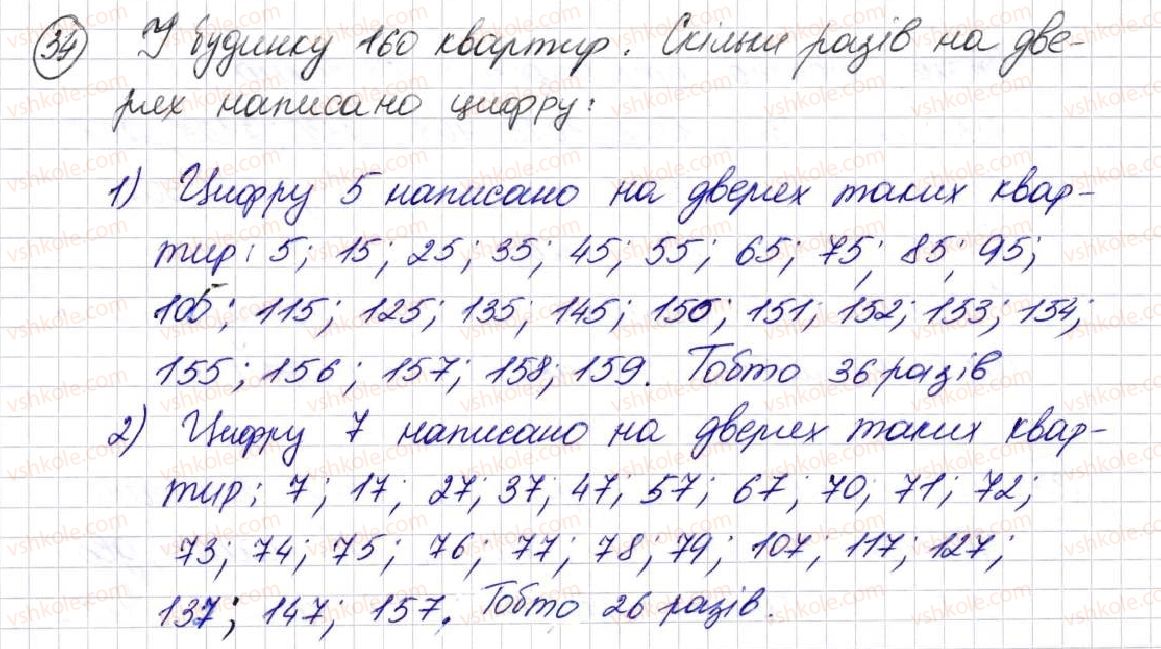 34 У будинку 160 квартир. Скільки разів на две-
рях написано цифру:
1) Цифру 5 написано на дверях таких квар-
тир: 5; 15; 25; 35; 45; 55; 65; 75; 85; 95;
105; 115; 125; 135; 145; 150; 151; 152; 153; 154;
155; 156; 157; 158; 159. Тобто 36 разів
2) Цифру 7 написано на дверях таких квар-
тир: 7; 17; 27; 37; 47; 57; 67; 70; 71; 72;
73; 74; 75; 76; 77; 78; 79; 107; 117; 127;
137; 147; 157. Тобто 26 разів.